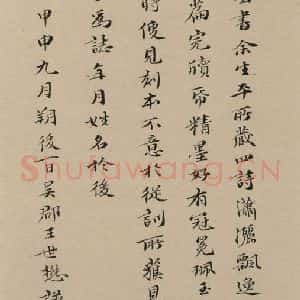 書余生平所藏四詩瀟灑飄逸
篇完牘帋精墨好有冠冕珮玉
時僅見刻本不意於從訓所獲見
為誌年月姓名於後
甲申九月朔後日吳郡王世懋
Shufawang.CN